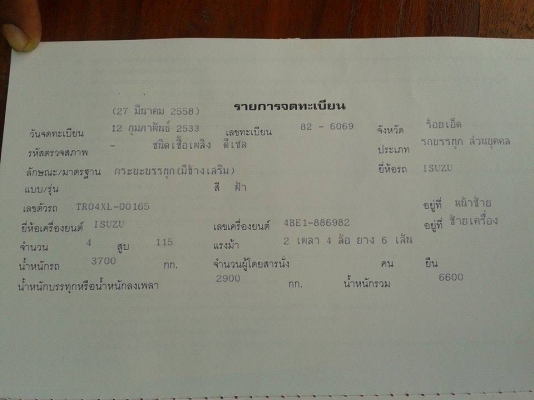 (27 มีนาคม 2558) รายการจดทะเบียน
วันจดทะเบียน 12 กุมภาพันธ์ 2533 เลขทะเบียน 82 - 6069 จังหวัด ร้อยเอ็ด
รหัสตรวจสภาพ - ชนิดเชื้อเพลิง ดีเซล ประเภท รถบรรทุก ส่วนบุคคล
ลักษณะ/มาตรฐาน กระบะบรรทุก(มีข้างเสริม) ยี่ห้อรถ ISUZU
แบบ/รุ่น สี ฟ้า
เลขตัวรถ TR04XL-00165 อยู่ที่ หน้าซ้าย
ยี่ห้อเครื่องยนต์ ISUZU เลขเครื่องยนต์ 4BE1-886982 อยู่ที่ ซ้ายเครื่อง
จำนวน 4 สูบ 115 แรงม้า 2 เพลา 4 ล้อ ยาง 6 เส้น
น้ำหนักรถ 3700 กก. จำนวนผู้โดยสารนั่ง คน ยืน
น้ำหนักบรรทุกหรือน้ำหนักลงเพลา 2900 กก. น้ำหนักรวม 6600